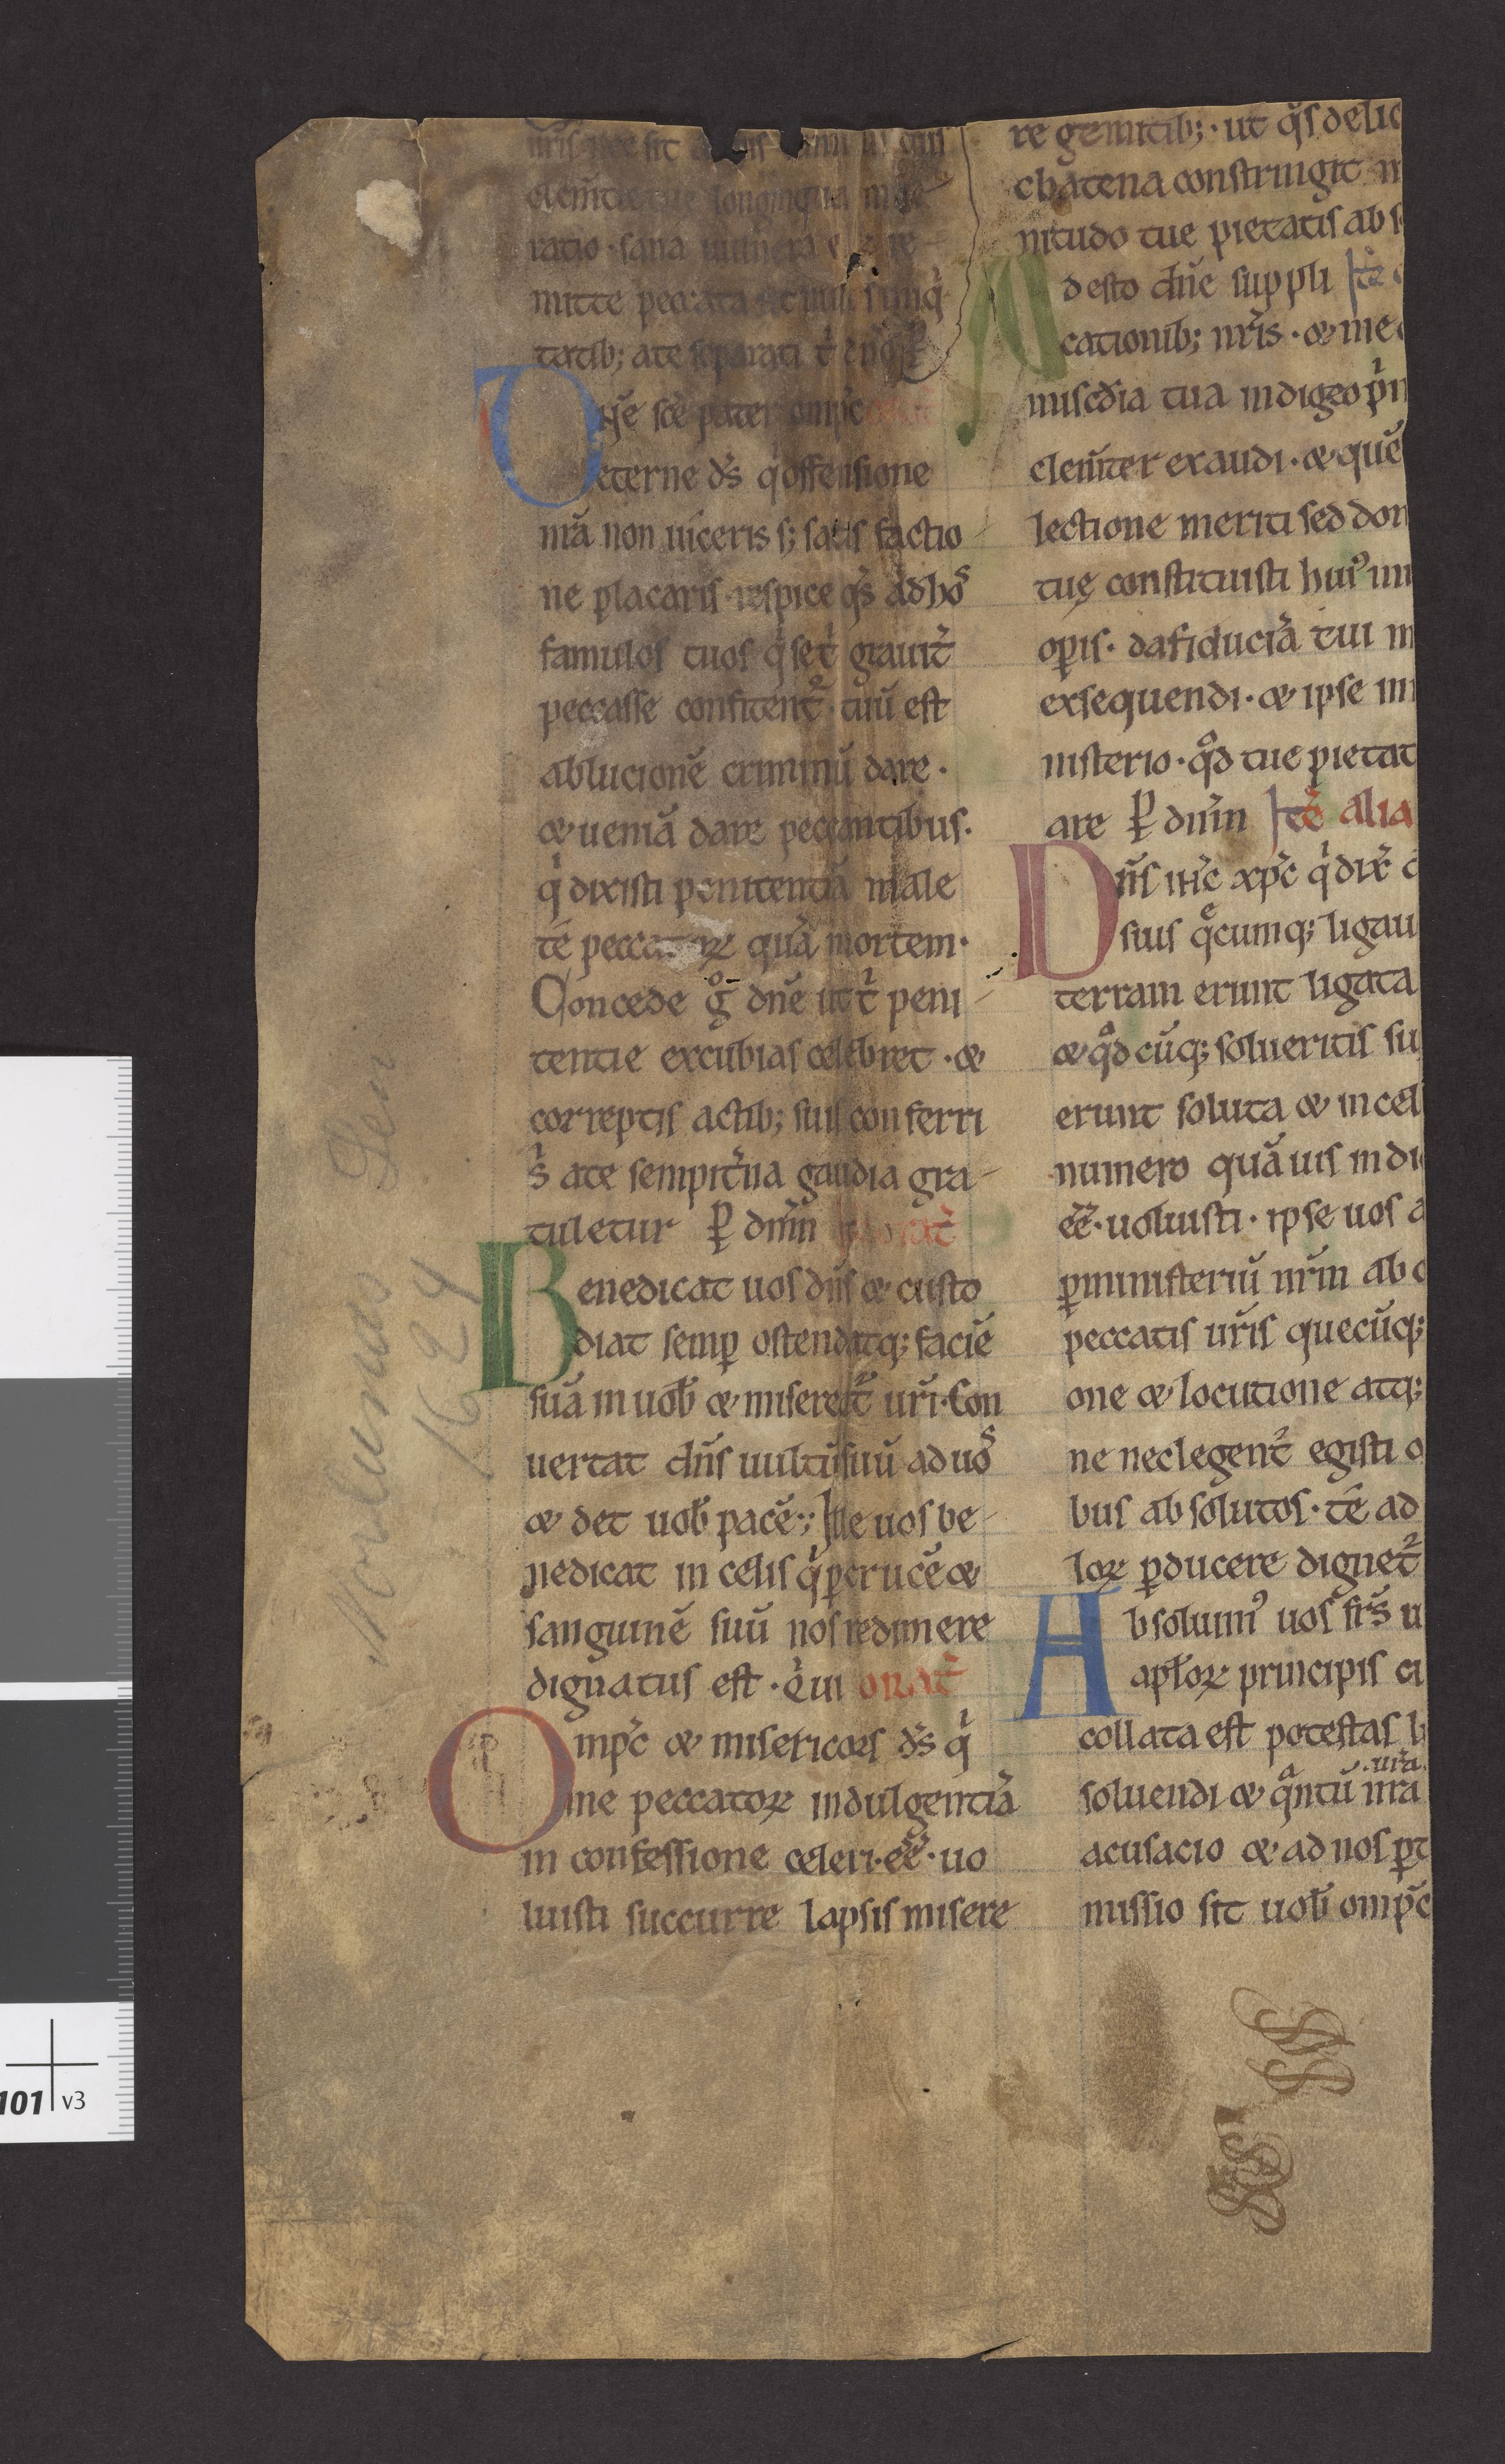 nr̄is nec sit
clem̄tie tue longinqua mise
ratio · sana uulnera et re
mitte peccata ut nullis iniq̇
tatib; a te separati
Dn̄e sc̄e pater omp̄c
eterne d̄s q̇ offensione
nr̄a non uiceris s; satis factio
ne placaris · respice q̄s ad hos
famulos tuos q̇ se t̄ grauit̄
peccasse confitent̄ · tuū est
ablucionē criminū dare ·
& ueniā dare peccantibus.
q̇ dixisti penitentiā male
te peccatoꝝ quā mortem ·
Concede g̊ dn̄e ut t̄ peni
tentie excubias celebret · &
correptis actib; suis conferri
s̄ a te sempit̄na gaudia gra
tuletur ꝑ dnm̄
Benedicat uos dn̄s & custo
diat semꝑ ostendatq; faciē
suā in uob̄ & misereat̄ ur̄i · Con
uertat dn̄s uultū suū ad uos
& det uob̄ pacē ·; Ille uos be
nedicat in celis q̇ ꝑ crucē &
sanguinē suū nos redimere
dignatus est · Qui orat̄
Omp̄c & misericors d̄s q̇
ine peccatoꝝ indulgentiā
in confessione celeri · eē · uo
luisti succurre lapsis misere
re gemitib; · ut q̄s delic
chatena constringit m
nitudo tue pietatis abs
Adesto dn̄e suppli Itē
cationib; nr̄is · & me
miscd̄ia tua indigeo p̄m
clem̄ter exaudi · & quē
lectione meriti sed don
tuę constituisti hui⁹ mi
oꝑis · da fiduciā tui m
exsequendi · & ipse in
nisterio · qd̊ tue pietat
are ꝑ dnm̄ Itē alia
Dn̄s ih̄c xp̄c q̇ dix̄ d
suis q̄cumq; ligau
terram erunt ligata
& qd̄ cūq; solueritis su
erunt soluta & in cel
numero quāuis indi
eē · uoluisti · ipse uos a
ꝑ ministeriū nr̄m ab o
peccatis ur̄is quecūq;
one & locutione atq;
ne neclegent̄ egisti o
bus absolutos · tē ad
loꝝ ꝑducere dignet̄
Absoluim⁹ uos fr̄s u
apl̄oꝝ principis cu
collata est potestas li
.ur̄a.
soluendi & q̄ntū nr̄a
acusacio & ad nos ꝑt
missio sit uob̄ omp̄c
1624